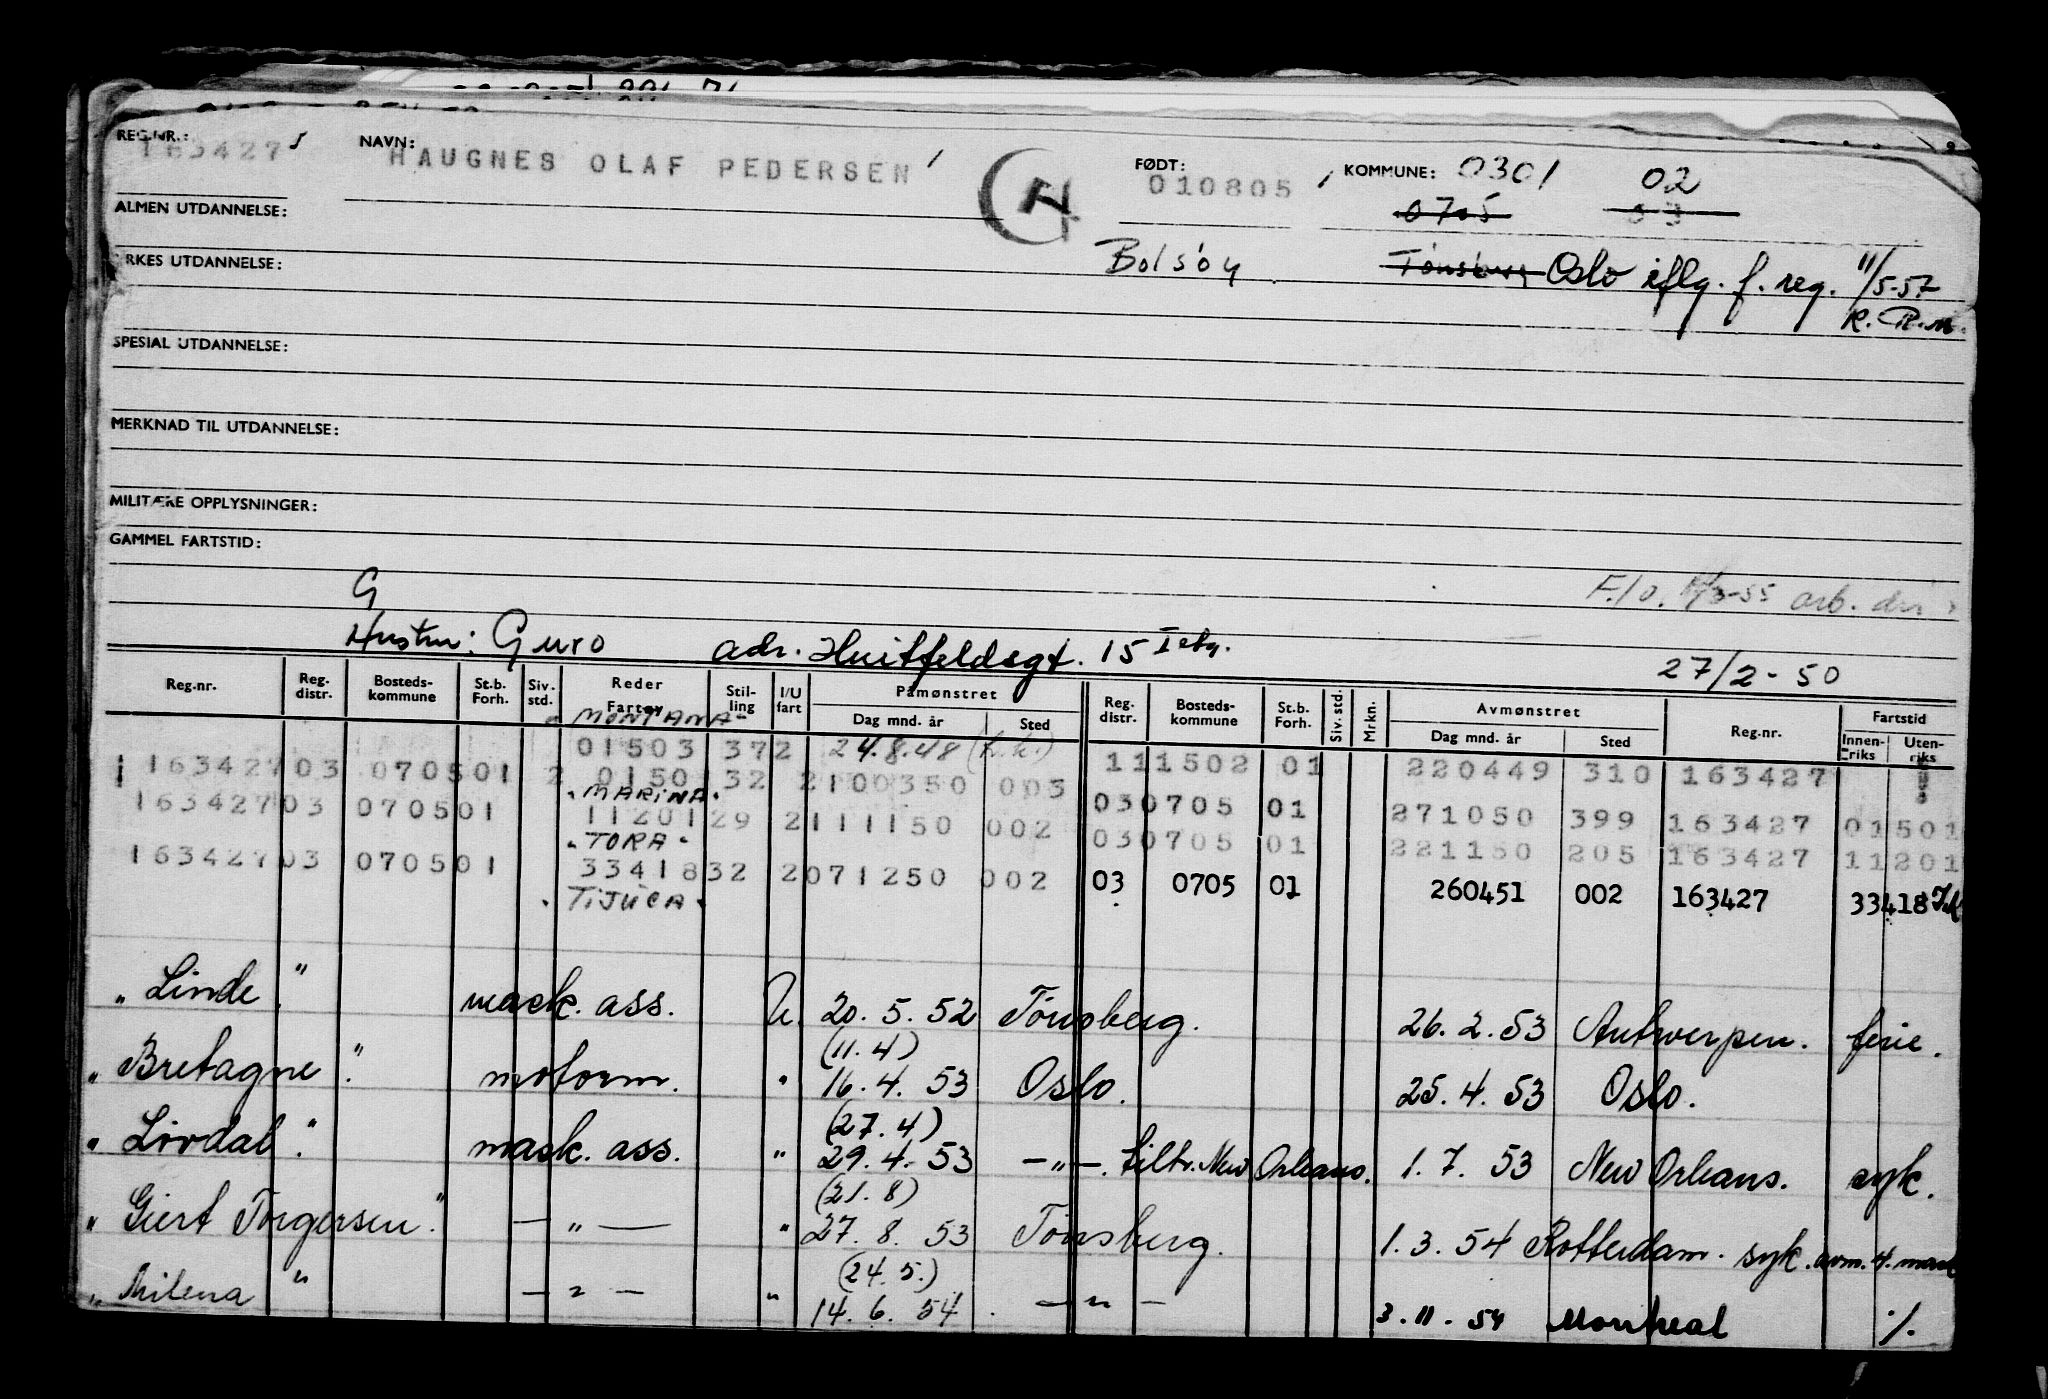 REG.NR.: 163427 NAVN: HAUGNES OLAF PEDERSEN FØDT: 010805 KOMMUNE: 0301 02
0705
ALMEN UTDANNELSE:
Bolsøy Tønsberg Oslo iflg. f. reg. 11/5-57
YRKES UTDANNELSE:
SPESIAL UTDANNELSE:
MERKNAD TIL UTDANNELSE:
MILITÆRE OPPLYSNINGER:
GAMMEL FARTSTID:
G
Hustru: Guro adr. Huitfeldsgt. 15 I etg. 27/2-50
Reg.nr. Reg. distr. Bosteds-kommune St.b. Forh. Siv. std. Reder Fartøy Stil-ling I/U fart Påmønstret Dag mnd. år Sted Reg. distr. Bosteds-kommune St.b. Forh. Siv. std. Mrkn. Avmønstret Dag mnd. år Sted Reg.nr. Fartstid Innen-riks Uten-riks
"MONTANA"
01503 372 24.8.48 (k.k.) 111502 01 220449 310 163427
163427 03 0705 01 2 0150 32 2 100350 003 03 0705 01 271050 399 163427 01501
"MARINA"
163427 03 0705 01 11201 29 2 111150 002 03 0705 01 221150 205 163427 11201
"TORA"
163427 03 0705 01 33418 32 2 071250 002 03 0705 01 260451 002 163427 33418
"TIJUCA"
"Linde" mask. ass. U. 20.5.52 Tønsberg. 26.2.53 Antwerpen. ferie.
(11.4)
"Bretagne" motorm. " 16.4.53 Oslo. 25.4.53 Oslo.
(27.4)
"Lørdal" mask. ass. " 29.4.53 —"—. tiltr. New Orleans. 1.7.53 New Orleans. syk.
(21.8)
"Giert Torgersen" —"— " 27.8.53 Tønsberg. 1.3.54 Rotterdam. syk. avm. 4. mask
(24.5.)
"Milena" —"— " 14.6.54 —"— 3.11.54 Montreal %